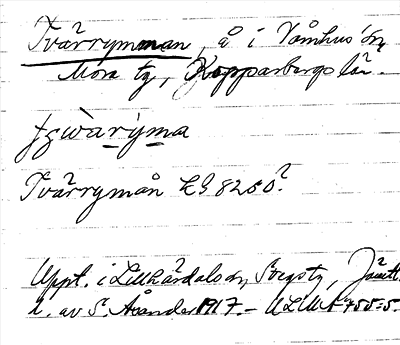 Tvärrymman, å i Våmhus sn,
Mora tg, Kopparbergs län.
tgwàrýma
Tvärrymån KB 8250?
Uppt. i Lillhärdals sn, Svegs tg, Jämtl.
l. av S. Ålander 1917. – ULMA 755:5.